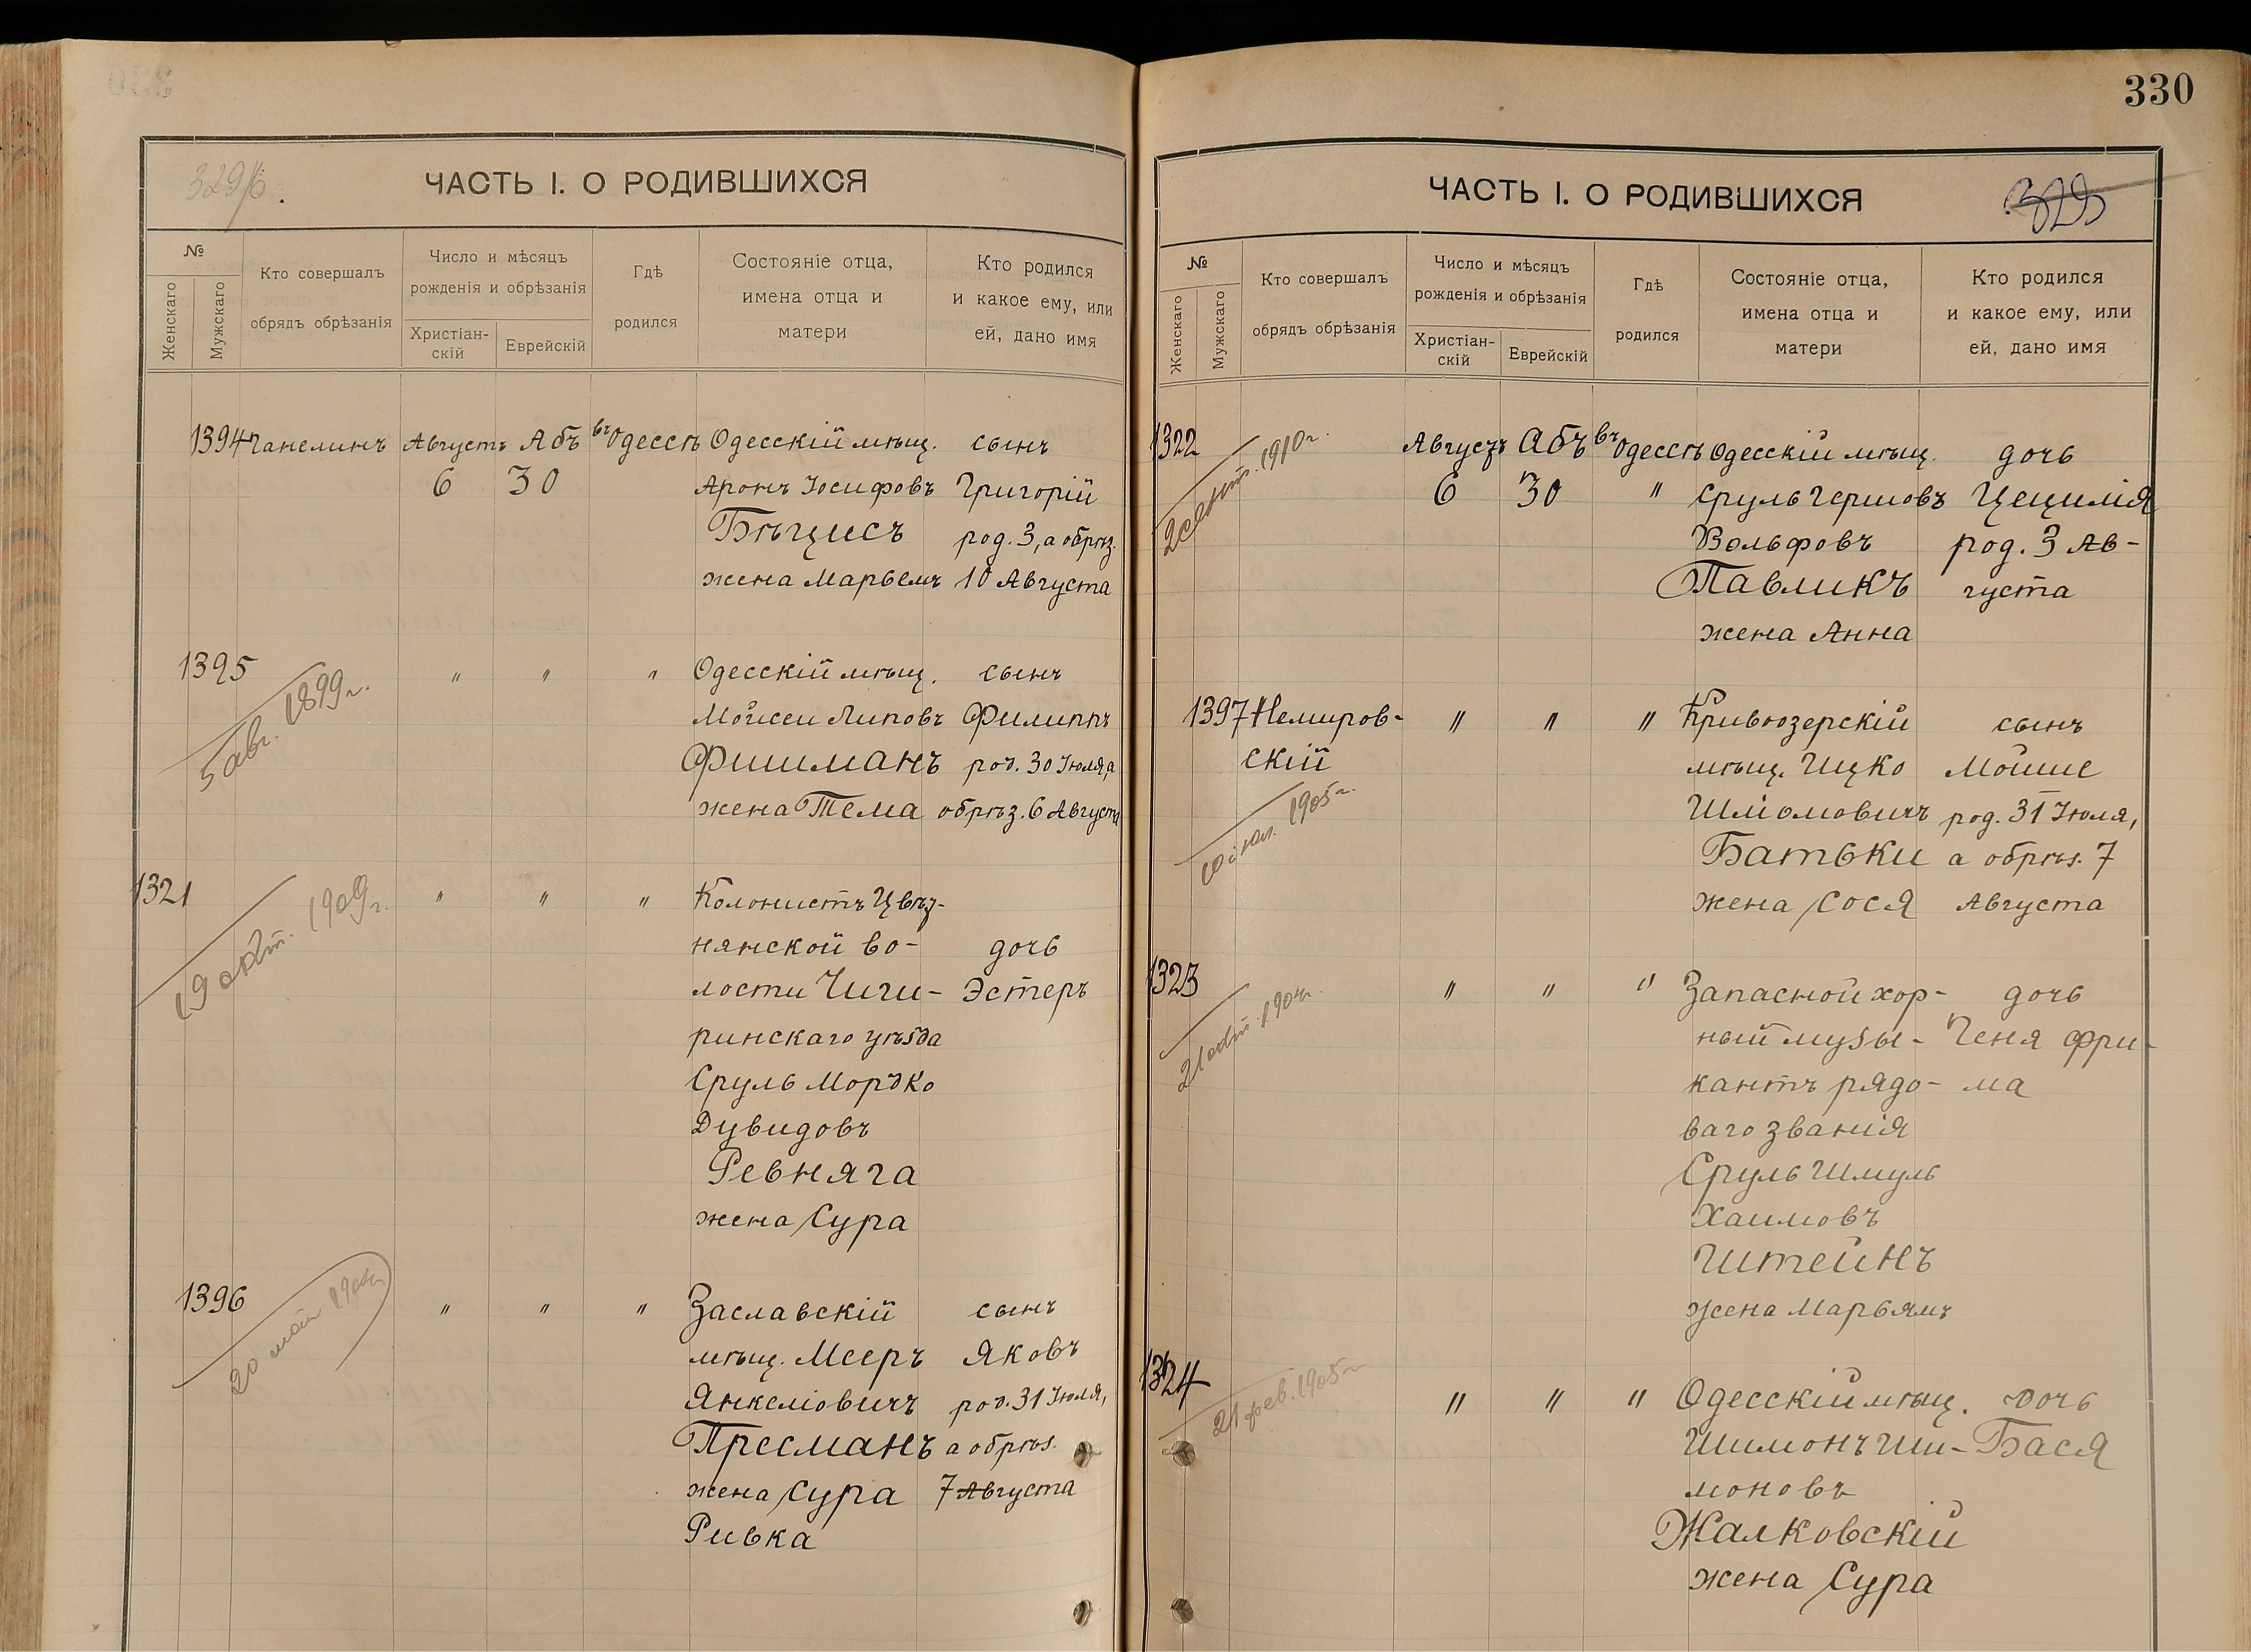 330
329/б.
ЧАСТЬ I. О РОДИВШИХСЯ
№
Женскаго
Мужскаго
Кто совершалъ
обрядъ обрѣзанія
Число и мѣсяцъ
рожденія и обрѣзанія
Христіан-
скій
Еврейскій
Гдѣ
родился
Состояніе отца,
имена отца и
матери
Кто родился
и какое ему, или
ей, дано имя
1394 Ганелинъ Августъ Абъ въ Одессѣ Одесскій мѣщ. сынъ
6 30 Аронъ Іосифовъ Григорій
Бѣцисъ род. 3, а обрѣз.
жена Марьемъ 10 Августа
1395 " " " Одесскій мѣщ. сынъ
5 авг. 1899 г.
Мойсей Липовъ Филиппъ
Фишманъ род. 30 Іюля, а
жена Тема обрѣз. 6 Августа
1321 " " " Колонистъ Цвѣт-
19 окт. 1909 г.
нянской во- дочь
лости Чиги- Эстеръ
ринскаго уѣзда
Сруль Мордко
Дувидовъ
Ревняга
жена Сура
1396 " " " Заславскій сынъ
20 мая
мѣщ. Мееръ Яковъ
Янкеліовичъ род. 31 Іюля,
Пресманъ а обрѣз.
жена Сура 7 Августа
Ривка
ЧАСТЬ I. О РОДИВШИХСЯ
329
№
Женскаго
Мужскаго
Кто совершалъ
обрядъ обрѣзанія
Число и мѣсяцъ
рожденія и обрѣзанія
Христіан-
скій
Еврейскій
Гдѣ
родился
Состояніе отца,
имена отца и
матери
Кто родился
и какое ему, или
ей, дано имя
1322 Августъ Абъ въ Одессѣ Одесскій мѣщ. дочь
2 сент. 1910 г.
6 30 " Сруль Гершовъ Цецилія
Вольфовъ род. 3 Ав-
Павликъ густа
жена Анна
1397 Немиров- " " " Кривоозерскій сынъ
скій мѣщ. Ицко Мойше
1905 г.
Шліомовичъ род. 31 Іюля,
Батьки а обрѣз. 7
жена Сося Августа
1323 " " " Запасной хор- дочь
21 окт. 1904 г.
ный музы- Геня Фри-
кантъ рядо- ма
ваго званія
Сруль Шмуль
Хаимовъ
Штейнъ
жена Марьямъ
1324 " " " Одесскій мѣщ. дочь
21 фев. 1905 г.
Шимонъ Ши- Бася
моновъ
Жалковскій
жена Сура